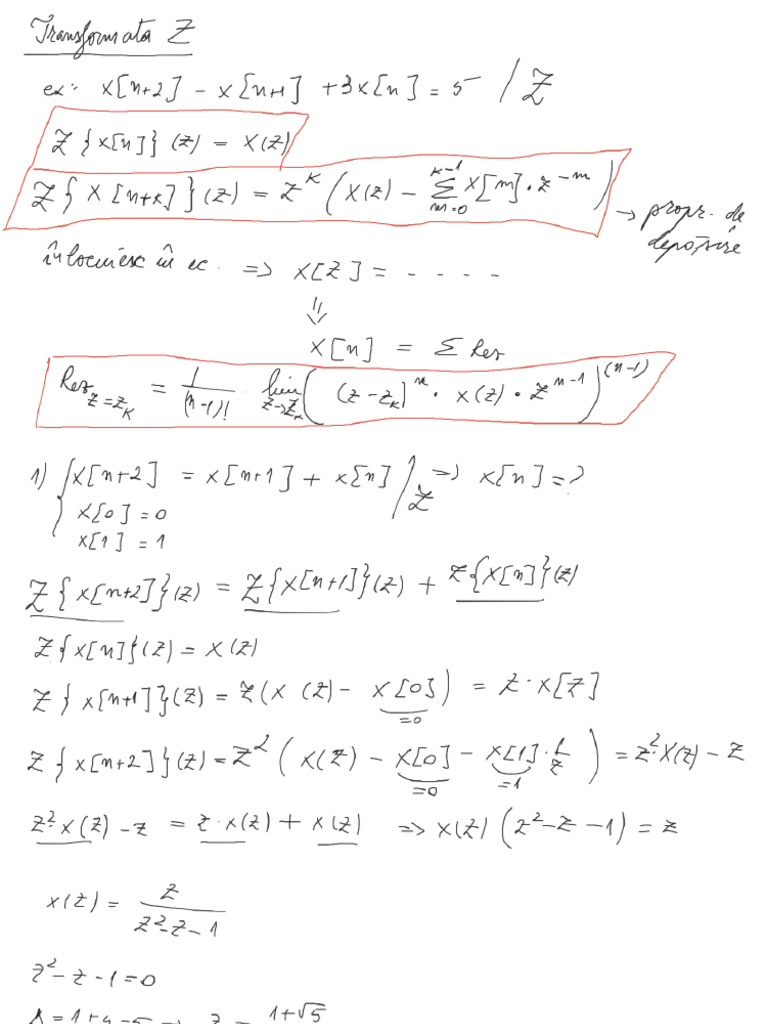 Transformata Z
ex: x[n+2] - x[n+1] + 3x[n] = 5 / Z
Z{x[n]}(z) = X(z)
Z{x[n+k]}(z) = z^k (X(z) - Σ_{m=0}^{k-1} x[m]·z^{-m})
→ propr. de
depășire
înlocuiesc în ec. => x[z] = - - - -
⇓
x[n] = Σ Rez
Rez_{z=z_k} = 1/(n-1)! · lim_{z→z_k} ((z-z_k)^n · x(z) · z^{n-1})^{(n-1)}
1) { x[n+2] = x[n+1] + x[n] / Z => x[n] = ?
x[0] = 0
x[1] = 1
Z{x[n+2]}(z) = Z{x[n+1]}(z) + Z{x[n]}(z)
Z{x[n]}(z) = X(z)
Z{x[n+1]}(z) = z(X(z) - x[0]) = z·x[z]
=0
Z{x[n+2]}(z) = z^2 (X(z) - x[0] - x[1]·1/z) = z^2·X(z) - z
=0 =1
z^2·X(z) - z = z·x(z) + x(z) => X(z)(z^2 - z - 1) = z
x(z) = z/(z^2 - z - 1)
z^2 - z - 1 = 0
Δ = 1+4 = 5 => z = 1+√5